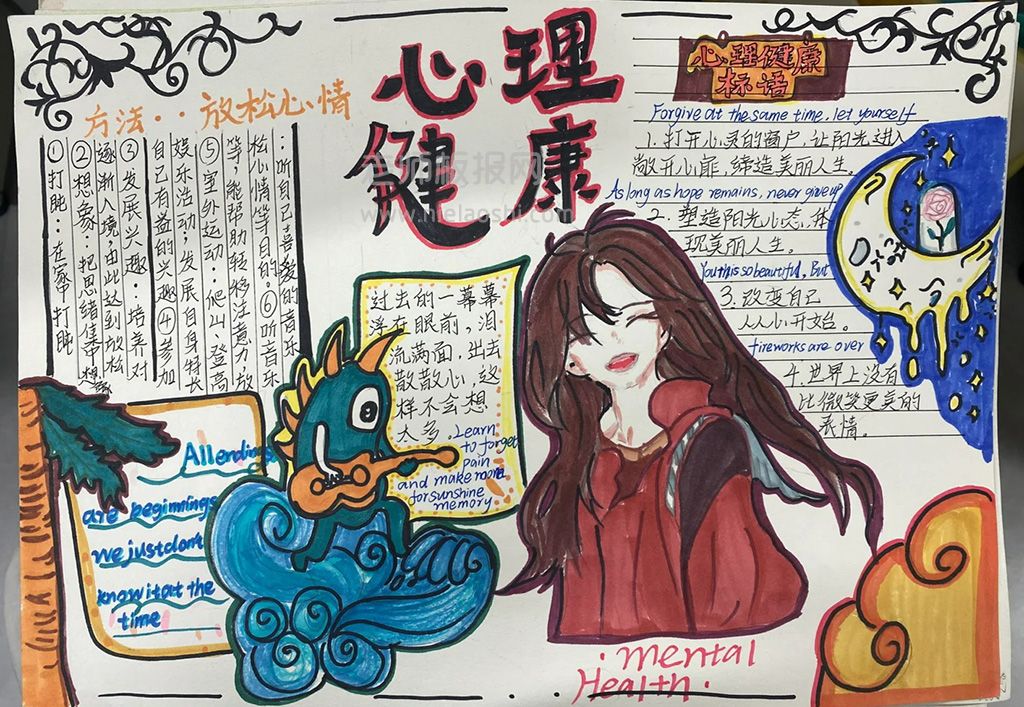 心理
健康
方法：放松心情
①打盹：在家中打盹
②想象：把思绪集中想象
逐渐入境，由此达到放松
③发展兴趣：培养对
自己有益的兴趣④参加
娱乐活动；发展自身特长
⑤室外运动：爬山 登高
等，能帮助转移注意力放
松心情等目的。⑥听音乐
：听自己喜爱的音乐
心理健康
标语
Forgive at the same time, let yourself
1.打开心灵的窗户，让阳光进入
敞开心扉，缔造美丽人生。
As long as hope remains, never give up
2.塑造阳光心态，体
现美丽人生。
You this so beautiful, But
3.改变自己
从心开始。
fireworks are over
4.世界上没有
比微笑更美的
表情。
过去的一幕幕
浮在眼前，泪
流满面，出去
散散心，这
样不会想
太多.
Learn
to forget
pain
and make room
for sunshine
memory
All endings
are beginnings
we just don't
know it at the
time
mental
Health.